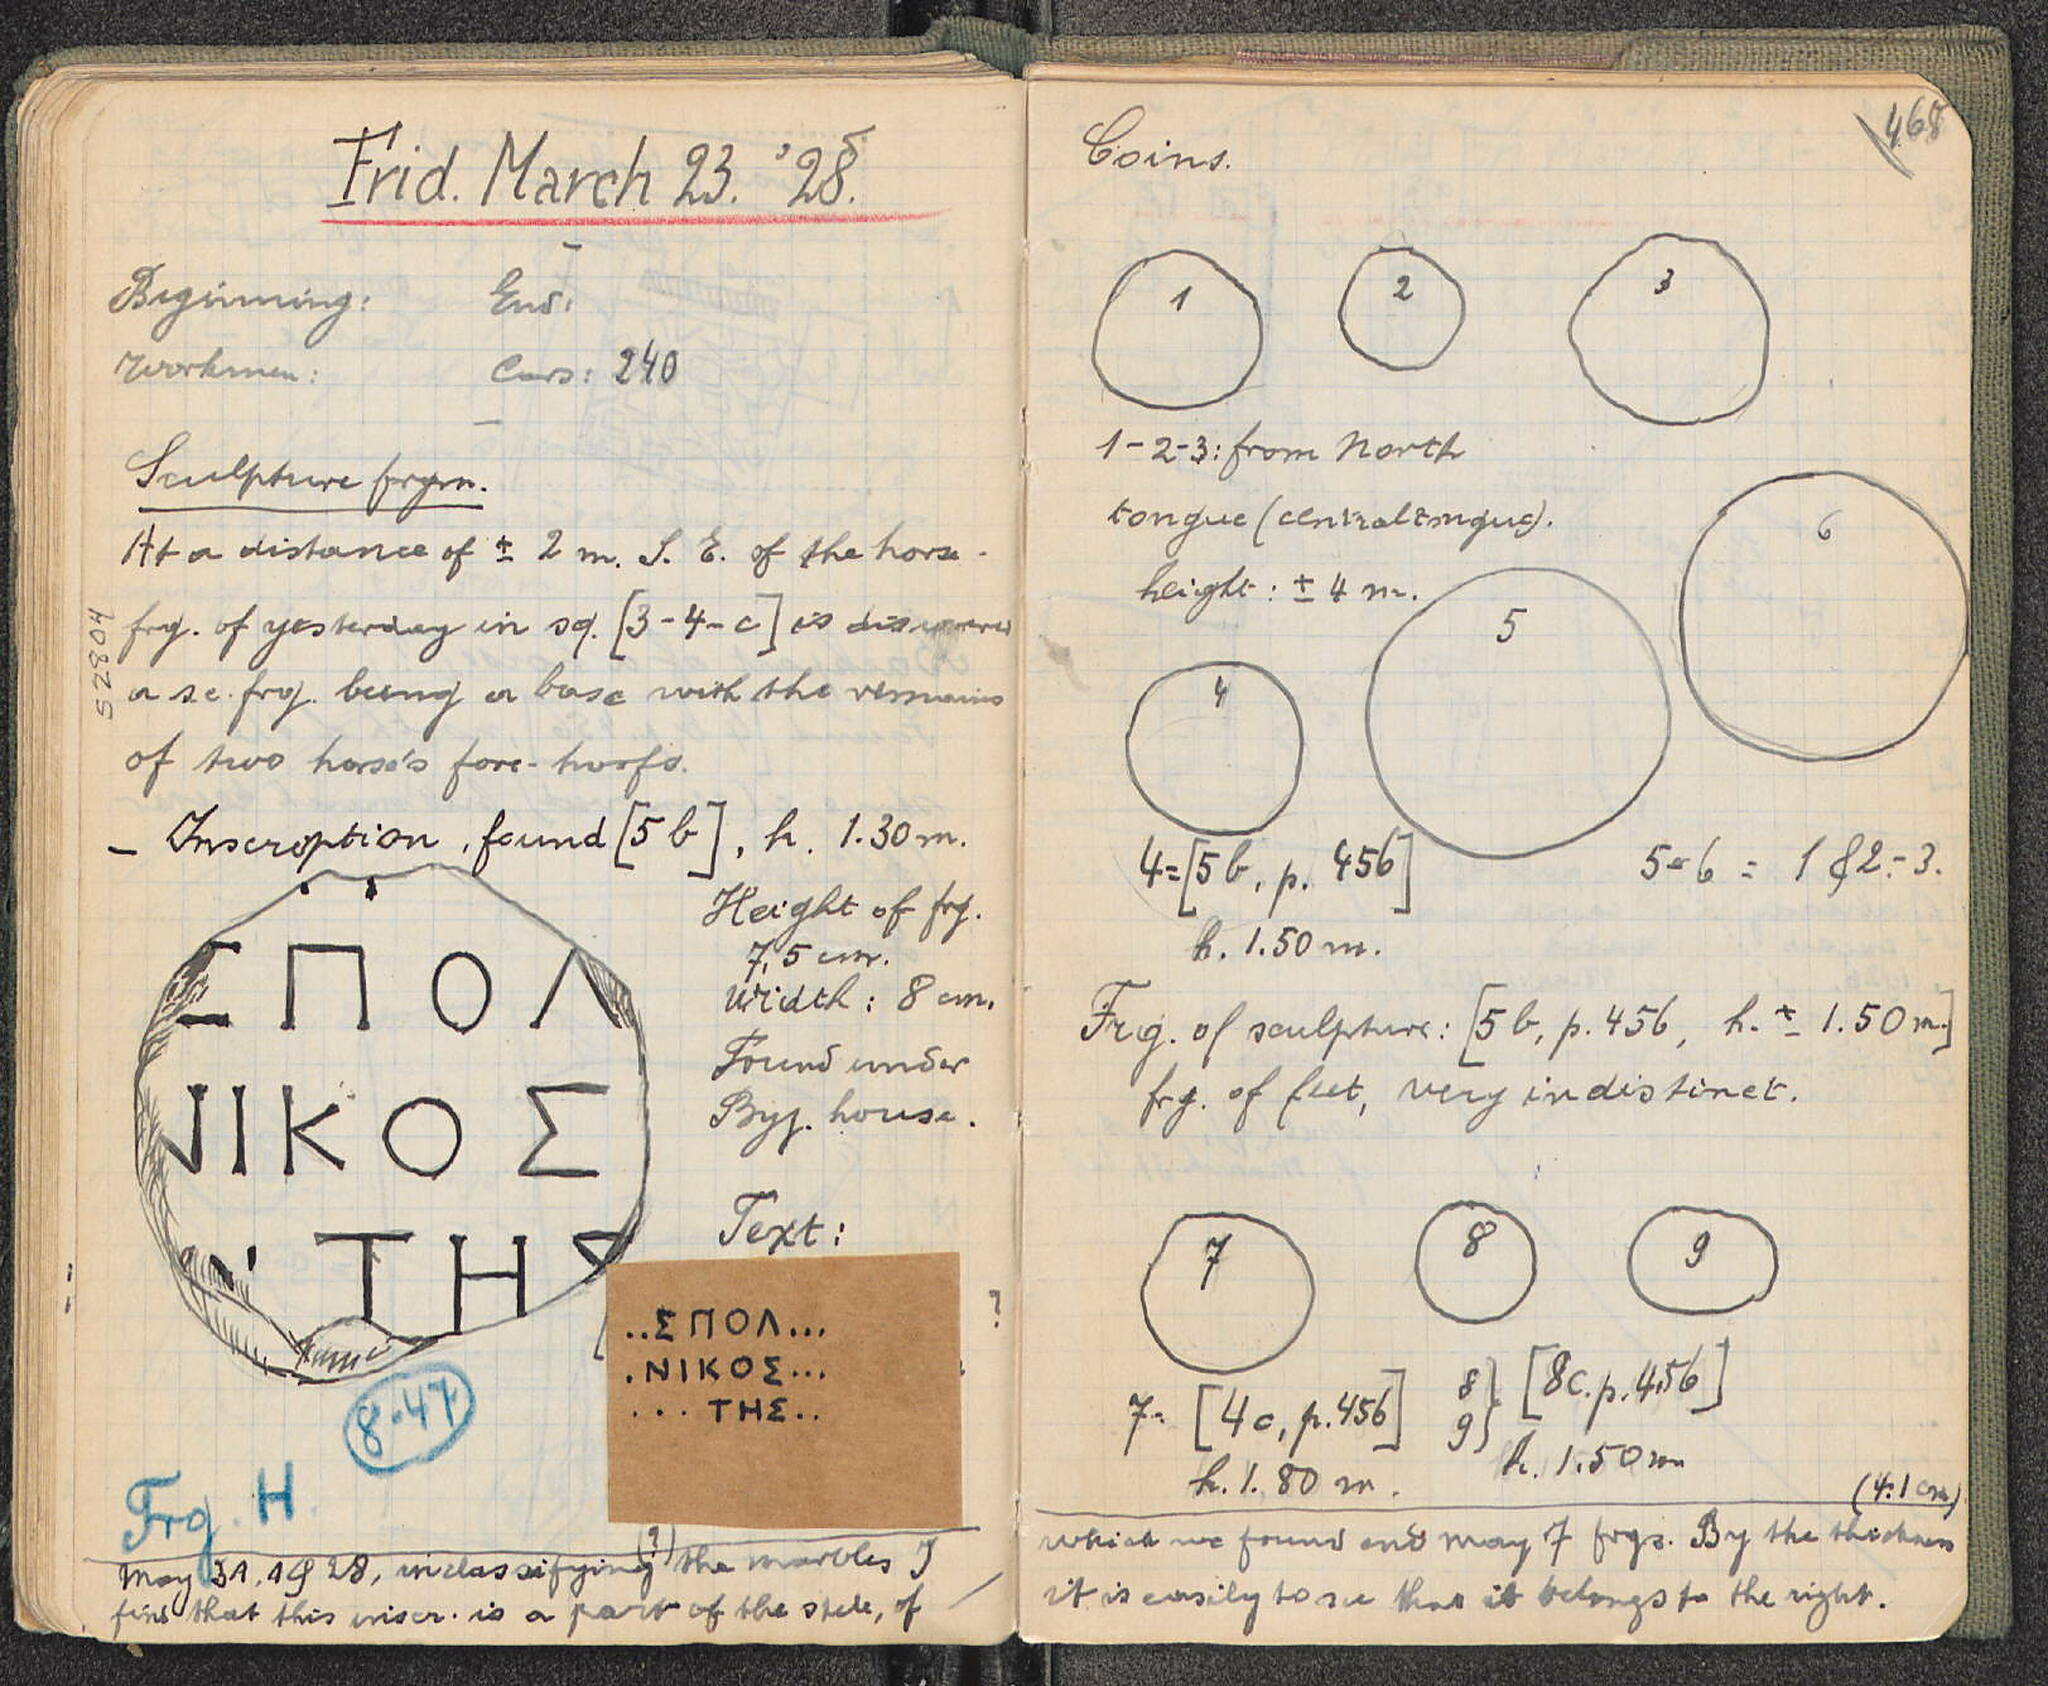 Frid. March 23. '28.
Beginning: End:
Workmen: Cars: 240
Sculpture frgm.
At a distance of ± 2 m. S. E. of the horse-
frg. of yesterday in sq. [3-4-c] is discovered
a sc. frg. being a base with the remains
of two horse's fore-hoofs.
S2804
– Inscription, found [5 b], h. 1.30 m.
Height of frg.
7,5 cm.
Width: 8 cm.
Found under
Byz. house.
Text:
ΣΠΟΛ
ΝΙΚΟΣ
ΤΗΣ
..ΣΠΟΛ...
.ΝΙΚΟΣ...
...ΤΗΣ..
?
8·47
Frg. H.
May 31, 1928, in classifying (?) the marbles I
find that this inscr. is a part of the stele, of
468
Coins.
1 2 3
1-2-3: from North
tongue (central tongue).
height: ± 4 m.
6
5
4
4=[5b, p. 456]
h. 1.50 m.
5-6 = 1 & 2-3.
Frg. of sculpture: [5b, p. 456, h. ± 1.50 m.]
frg. of feet, very indistinct.
7 8 9
7= [4c, p. 456]
h. 1.80 m.
8
9} [8c. p. 456]
h. 1.50 m
(4.1 cm)
which we found end May 7 frgs. By the thickness
it is easily to see that it belongs to the right.